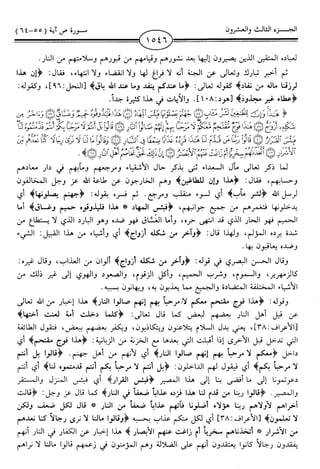 الجـزء الثالث والعشرون
١٥٤٦
سـورة ص آية (٥٥-٦٤)
لعباده المتقين الذين يصيرون إليها بعد نشورهم وقيامهم من قبورهم وسلامتهم من النار.
ثم أخبر تبارك وتعالى عن الجنة أنه لا فراغ لها ولا انقضاء ولا انتهاء، فقال: ﴿إن هذا
لرزقنا ماله من نفاد﴾ كقوله تعالى: ﴿ما عندكم ينفد وما عند الله باق﴾ [النحل:٩٦]، وكقوله:
﴿عطاء غير مجذوذ﴾ [هود:١٠٨]. والآيات في هذا كثيرة جداً.
لما ذكر تعالى مآل السعداء ثنى بذكر حال الأشقياء ومرجعهم ومآبهم في دار معادهم
وحسابهم، فقال: ﴿هذا وإن للطاغين﴾ وهم الخارجون عن طاعة الله عز وجل المخالفون
لرسل الله ﴿لشر مآب﴾ أي لسوء منقلب ومرجع. ثم فسره بقوله: ﴿جهنم يصلونها﴾ أي
يدخلونها فتغمرهم من جميع جوانبهم، ﴿فبئس المهاد * هذا فليذوقوه حميم وغساق﴾ أما
الحميم فهو الحار الذي قد انتهى حره، وأما الغَسَّاق فهو ضده وهو البارد الذي لا يستطاع من
شدة برده المؤلم، ولهذا قال: ﴿وآخر من شكله أزواج﴾ أي وأشياء من هذا القبيل: الشيء
وضده يعاقبون بها.
وقال الحسن البصري في قوله: ﴿وآخر من شكله أزواج﴾ ألوان من العذاب، وقال غيره:
كالزمهرير، والسموم، وشراب الحميم، وأكل الزقوم، والصعود والهوي إلى غير ذلك من
الأشياء المختلفة المتضادة والجميع مما يعذبون به، ويهانون بسببه.
وقوله: ﴿هذا فوج مقتحم معكم لا مرحباً بهم إنهم صالوا النار﴾ هذا إخبار من الله تعالى
عن قيل أهل النار بعضهم لبعض كما قال تعالى: ﴿كلما دخلت أمة لعنت أختها﴾
[الأعراف:٣٨]، يعني بدل السلام يتلاعنون ويتكاذبون، ويكفر بعضهم ببعض، فتقول الطائفة
التي تدخل قبل الأخرى إذا أقبلت التي بعدها مع الخزنة من الزبانية: ﴿هذا فوج مقتحم﴾ أي
داخل ﴿معكم لا مرحباً بهم إنهم صالوا النار﴾ أي لأنهم من أهل جهنم. ﴿قالوا بل أنتم
لا مرحباً بكم﴾ أي فيقول لهم الداخلون: ﴿بل أنتم لا مرحباً بكم أنتم قدمتموه لنا﴾ أي أنتم
دعوتمونا إلى ما أفضى بنا إلى هذا المصير ﴿فبئس القرار﴾ أي فبئس المنزل والمستقر
والمصير. ﴿قالوا ربنا من قدم لنا هذا فزده عذاباً ضعفاً في النار﴾ كما قال عز وجل: ﴿قالت
أخراهم لأولاهم ربنا هؤلاء أضلونا فآتهم عذاباً ضعفاً من النار * قال لكل ضعف ولكن
لا تعلمون﴾ [الأعراف:٣٨] أي لكل منكم عذاب بحسبه ﴿وقالوا مالنا لا نرى رجالاً كنا نعدهم
من الأشرار * أتخذناهم سخرياً أم زاغت عنهم الأبصار﴾ هذا إخبار عن الكفار في النار أنهم
يفقدون رجالاً كانوا يعتقدون أنهم على الضلالة وهم المؤمنون في زعمهم قالوا مالنا لا نراهم